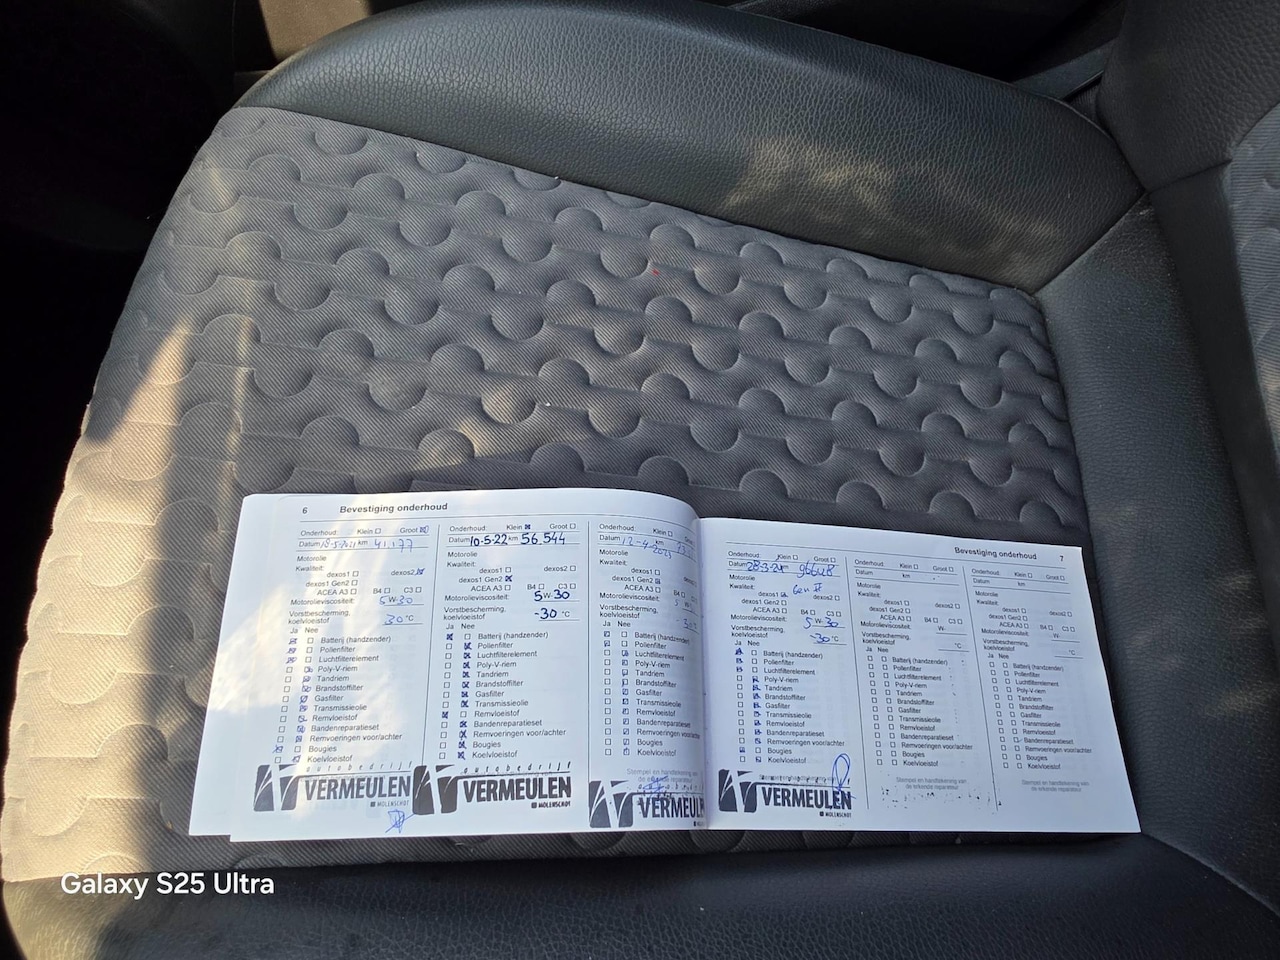 6 Bevestiging onderhoud
Onderhoud: Klein Groot
Datum km 41.177
Motorolie
Kwaliteit:
dexos1 dexos2
dexos1 Gen2
ACEA A3 B4 C3
Motorolieviscositeit: 5 W-30
Vorstbescherming,
koelvloeistof 30 °C
Ja Nee
Batterij (handzender)
Pollenfilter
Luchtfilterelement
Poly-V-riem
Tandriem
Brandstoffilter
Gasfilter
Transmissieolie
Remvloeistof
Bandenreparatieset
Remvoeringen voor/achter
Bougies
Koelvloeistof
autobedrijf
VERMEULEN
MOLENSCHOT
Onderhoud: Klein Groot
Datum 10-5-22 km 56.544
Motorolie
Kwaliteit:
dexos1 dexos2
dexos1 Gen2
ACEA A3 B4 C3
Motorolieviscositeit: 5 W-30
Vorstbescherming,
koelvloeistof -30 °C
Ja Nee
Batterij (handzender)
Pollenfilter
Luchtfilterelement
Poly-V-riem
Tandriem
Brandstoffilter
Gasfilter
Transmissieolie
Remvloeistof
Bandenreparatieset
Remvoeringen voor/achter
Bougies
Koelvloeistof
autobedrijf
VERMEULEN
MOLENSCHOT
Onderhoud: Klein Groot
Datum 12-4-2023
Motorolie
Kwaliteit:
dexos1
dexos1 Gen2
ACEA A3 B4 C3
Motorolieviscositeit: 5
Vorstbescherming,
koelvloeistof
Ja Nee
Batterij (handzender)
Pollenfilter
Luchtfilterelement
Poly-V-riem
Tandriem
Brandstoffilter
Gasfilter
Transmissieolie
Remvloeistof
Bandenreparatieset
Remvoeringen voor/achter
Bougies
Koelvloeistof
Stempel en handtekening van
VERMEULEN
Bevestiging onderhoud 7
Onderhoud: Klein Groot
Datum 28-3-24 km
Motorolie
Kwaliteit: Gen II
dexos1 dexos2
dexos1 Gen2
ACEA A3 B4 C3
Motorolieviscositeit: 5 W-30
Vorstbescherming,
koelvloeistof -30 °C
Ja Nee
Batterij (handzender)
Pollenfilter
Luchtfilterelement
Poly-V-riem
Tandriem
Brandstoffilter
Gasfilter
Transmissieolie
Remvloeistof
Bandenreparatieset
Remvoeringen voor/achter
Bougies
Koelvloeistof
VERMEULEN
MOLENSCHOT
Onderhoud: Klein Groot
Datum km
Motorolie
Kwaliteit:
dexos1 dexos2
dexos1 Gen2
ACEA A3 B4 C3
Motorolieviscositeit: W-
Vorstbescherming,
koelvloeistof °C
Ja Nee
Batterij (handzender)
Pollenfilter
Luchtfilterelement
Poly-V-riem
Tandriem
Brandstoffilter
Gasfilter
Transmissieolie
Remvloeistof
Bandenreparatieset
Remvoeringen voor/achter
Bougies
Koelvloeistof
Stempel en handtekening van
de erkende reparateur
Onderhoud: Klein Groot
Datum km
Motorolie
Kwaliteit:
dexos1 dexos2
dexos1 Gen2
ACEA A3 B4 C3
Motorolieviscositeit: W-
Vorstbescherming,
koelvloeistof °C
Ja Nee
Batterij (handzender)
Pollenfilter
Luchtfilterelement
Poly-V-riem
Tandriem
Brandstoffilter
Gasfilter
Transmissieolie
Remvloeistof
Bandenreparatieset
Remvoeringen voor/achter
Bougies
Koelvloeistof
Stempel en handtekening van
de erkende reparateur
Galaxy S25 Ultra